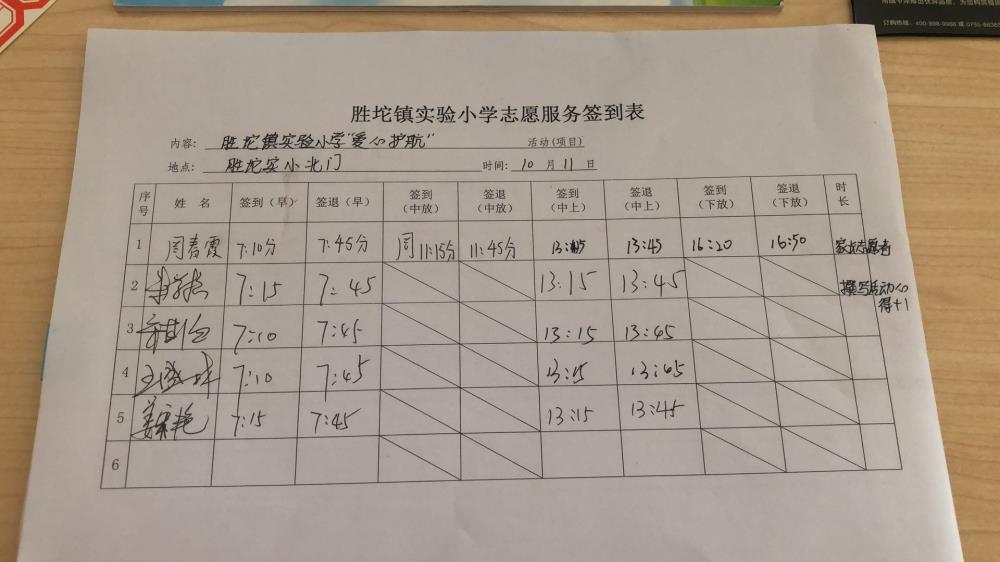 订购热线：400-998-9968 或 0755-86365
胜坨镇实验小学志愿服务签到表
内容： 胜坨镇实验小学“爱心护航” 活动(项目)
地点： 胜坨实小北门 时间： 10 月 11 日
序号 姓 名 签到（早） 签退（早） 签到（中放） 签退（中放） 签到（中上） 签退（中上） 签到（下放） 签退（下放） 时长
1 周春霞 7:10分 7:45分 周 11:15分 11:45分 13:15 13:45 16:20 16:50 家长志愿者
2 7:15 7:45 13:15 13:45 撰写活动心
得+1
3 7:10 7:45 13:15 13:45
4 7:10 7:45 13:15 13:45
5 7:15 7:45 13:15 13:45
6